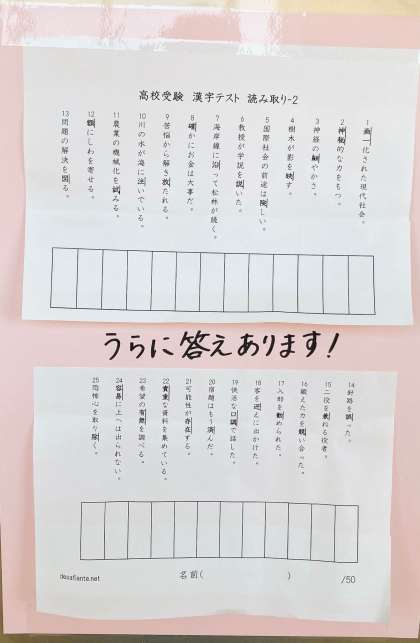 高校受験 漢字テスト 読み取り-2
1 画一化された現代社会。
2 神秘的な力をもつ。
3 神経の細やかさ。
4 樹木が影を映す。
5 国際社会の前途は険しい。
6 教授が学説を説いた。
7 海岸線に沿って松林が続く。
8 確かにお金は大事だ。
9 苦悩から解き放たれる。
10 川の水が海に注いでいる。
11 農業の機械化を試みる。
12 額にしわを寄せる。
13 問題の解決を図る。
うらに答えあります!
14 針路を誤った。
15 二役を兼ねる役者。
16 鍛えた力を競い合った。
17 入部を勧められた。
18 客を迎えに出かけた。
19 快活な口調で話した。
20 宿題はもう済んだ。
21 可能性が存在する。
22 貴重な資料を集めている。
23 希望の有無を調べる。
24 容易に上へは出られない。
25 恐怖心を取り除く。
desafiante.net
名前( )
/50